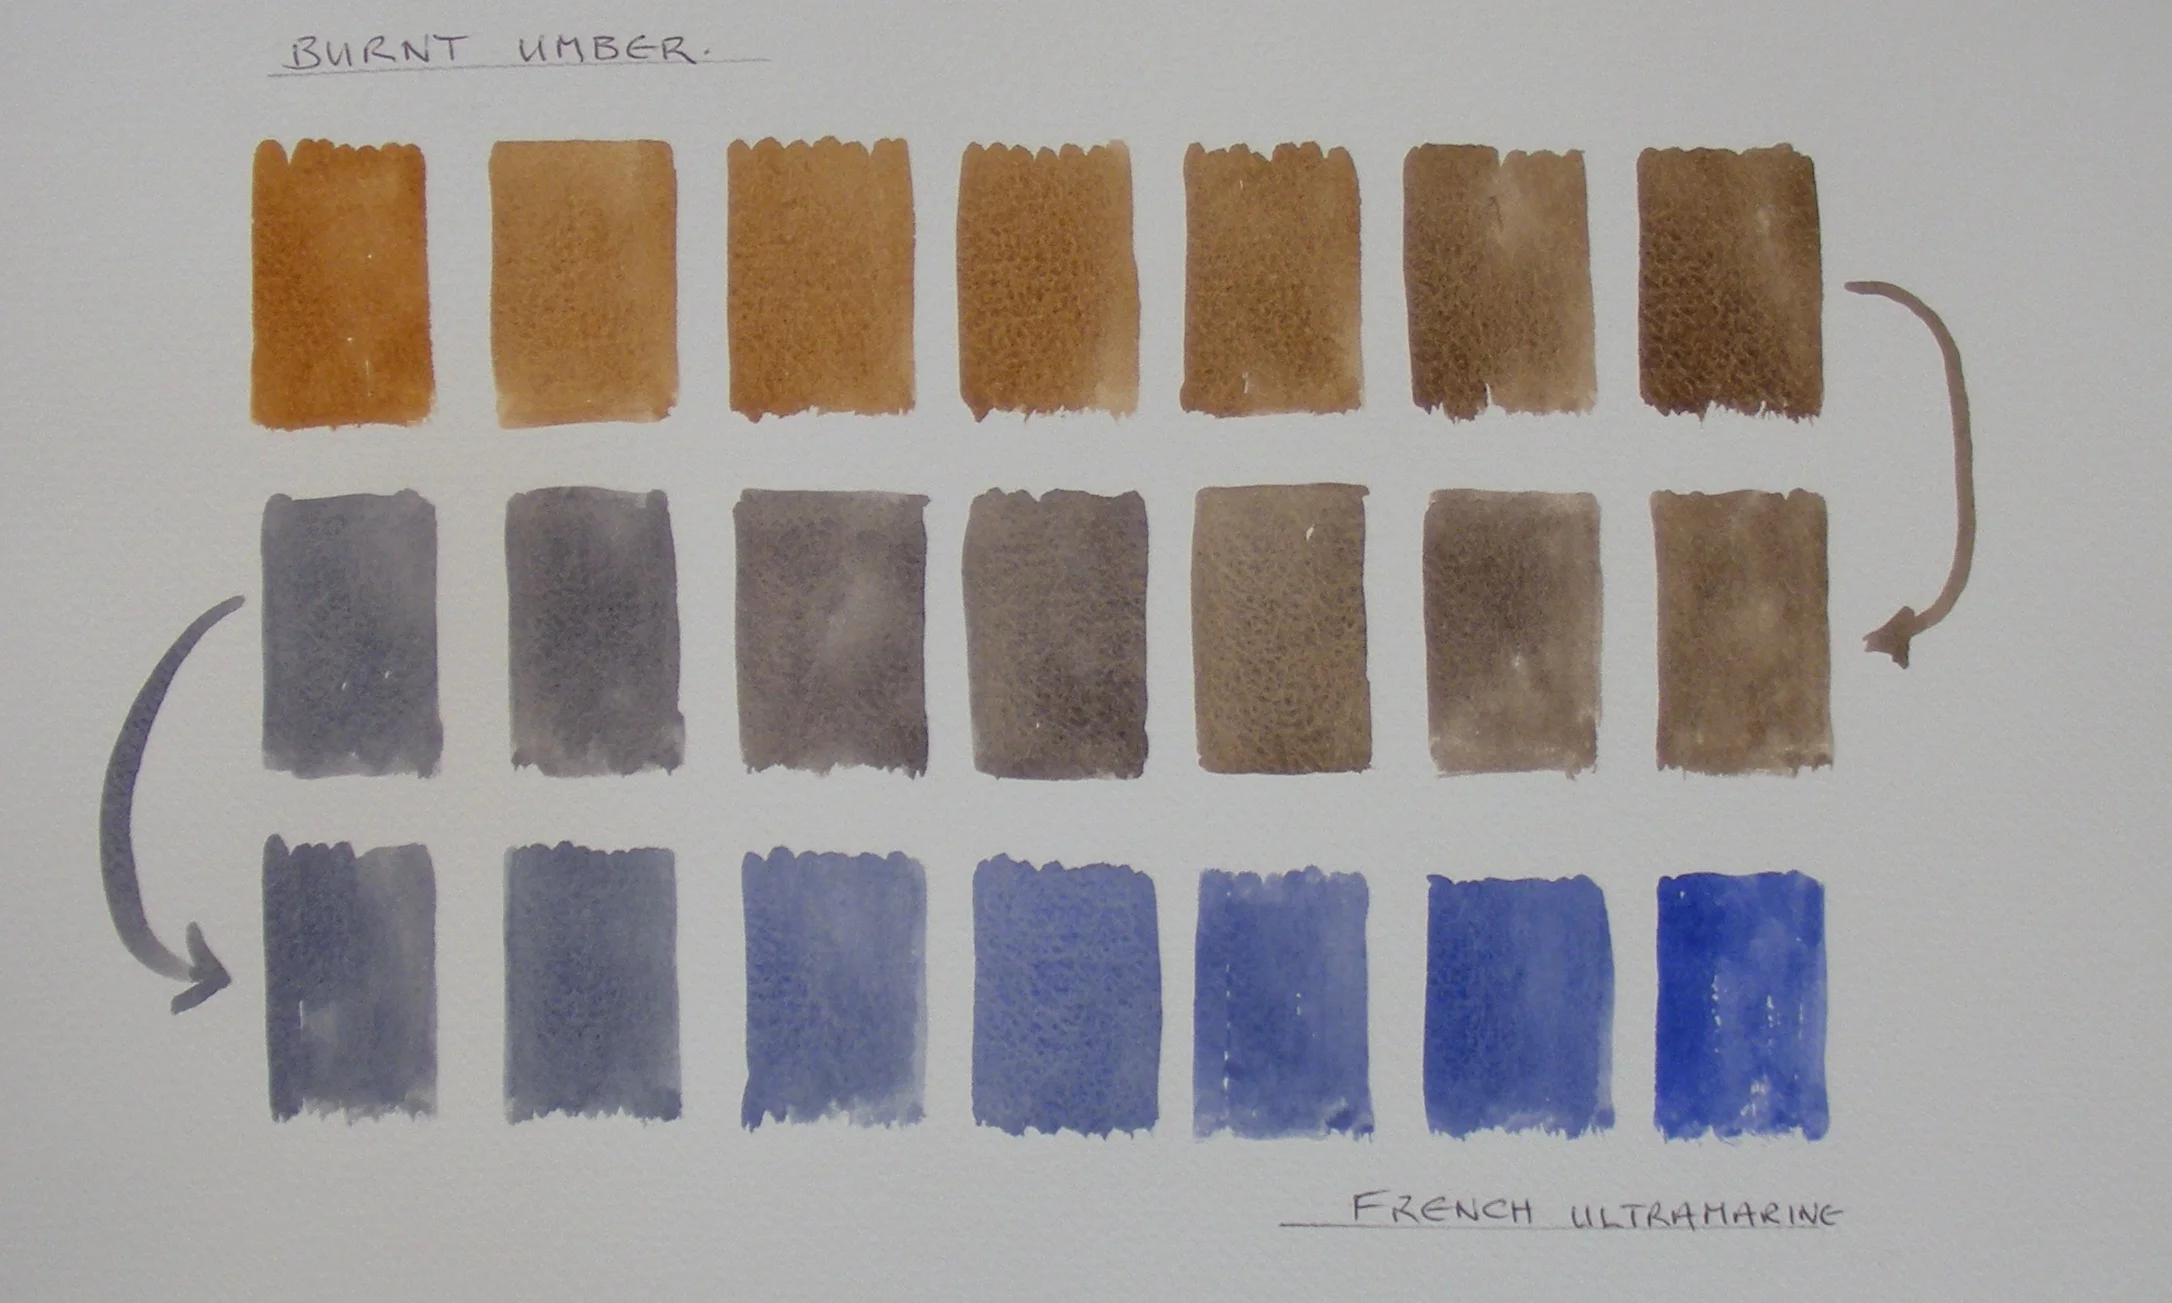 BURNT UMBER.
FRENCH ULTRAMARINE